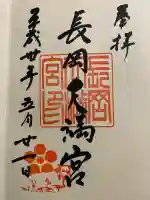 奉拝
長岡天満宮
長岡宮印
平成廿年五月廿一日